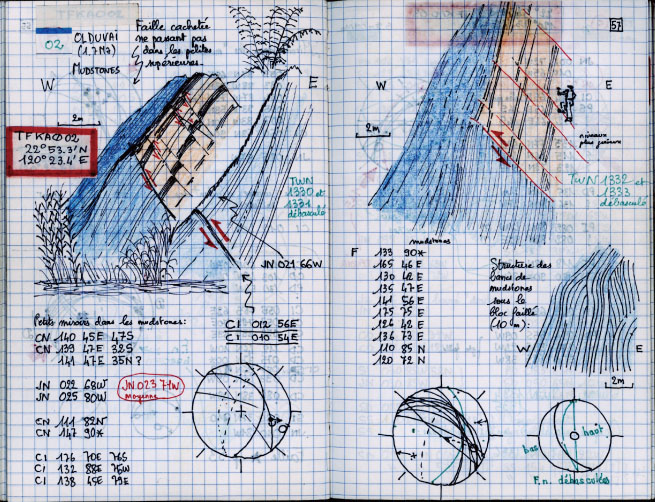 TFKA002
02
OLDUVAI
(1.7 Ma)
MUDSTONES
Faille cachetée
ne passant pas
dans les pelites
supérieures.
W
E
2m
TFKA002
22° 53.3' N
120° 23.4' E
TWN
1330 et
1331
débasculé
JN 021 66W
Petits miroirs dans les mudstones:
CN 140 45E 47S
CN 139 47E 32S
141 47E 35N ?
CI 012 56E
CI 010 54E
JN 022 68W
JN 025 80W
JN 023 71W
moyenne
CN 111 82N
CN 147 90*
CI 176 70E 76S
CI 132 88E 75W
CI 138 45E 79E
57
W
E
2m
niveaux
plus jeunes
TWN 1332
et
1333
débasculé
mudstones
F 139 90*
165 46E
130 42E
135 47E
141 56E
175 75E
126 42E
136 73E
110 85N
120 72N
Structure des
bancs de
mudstones
sous le
bloc faillé
(10 m):
W
E
2m
bas
haut
F.n. débasculées